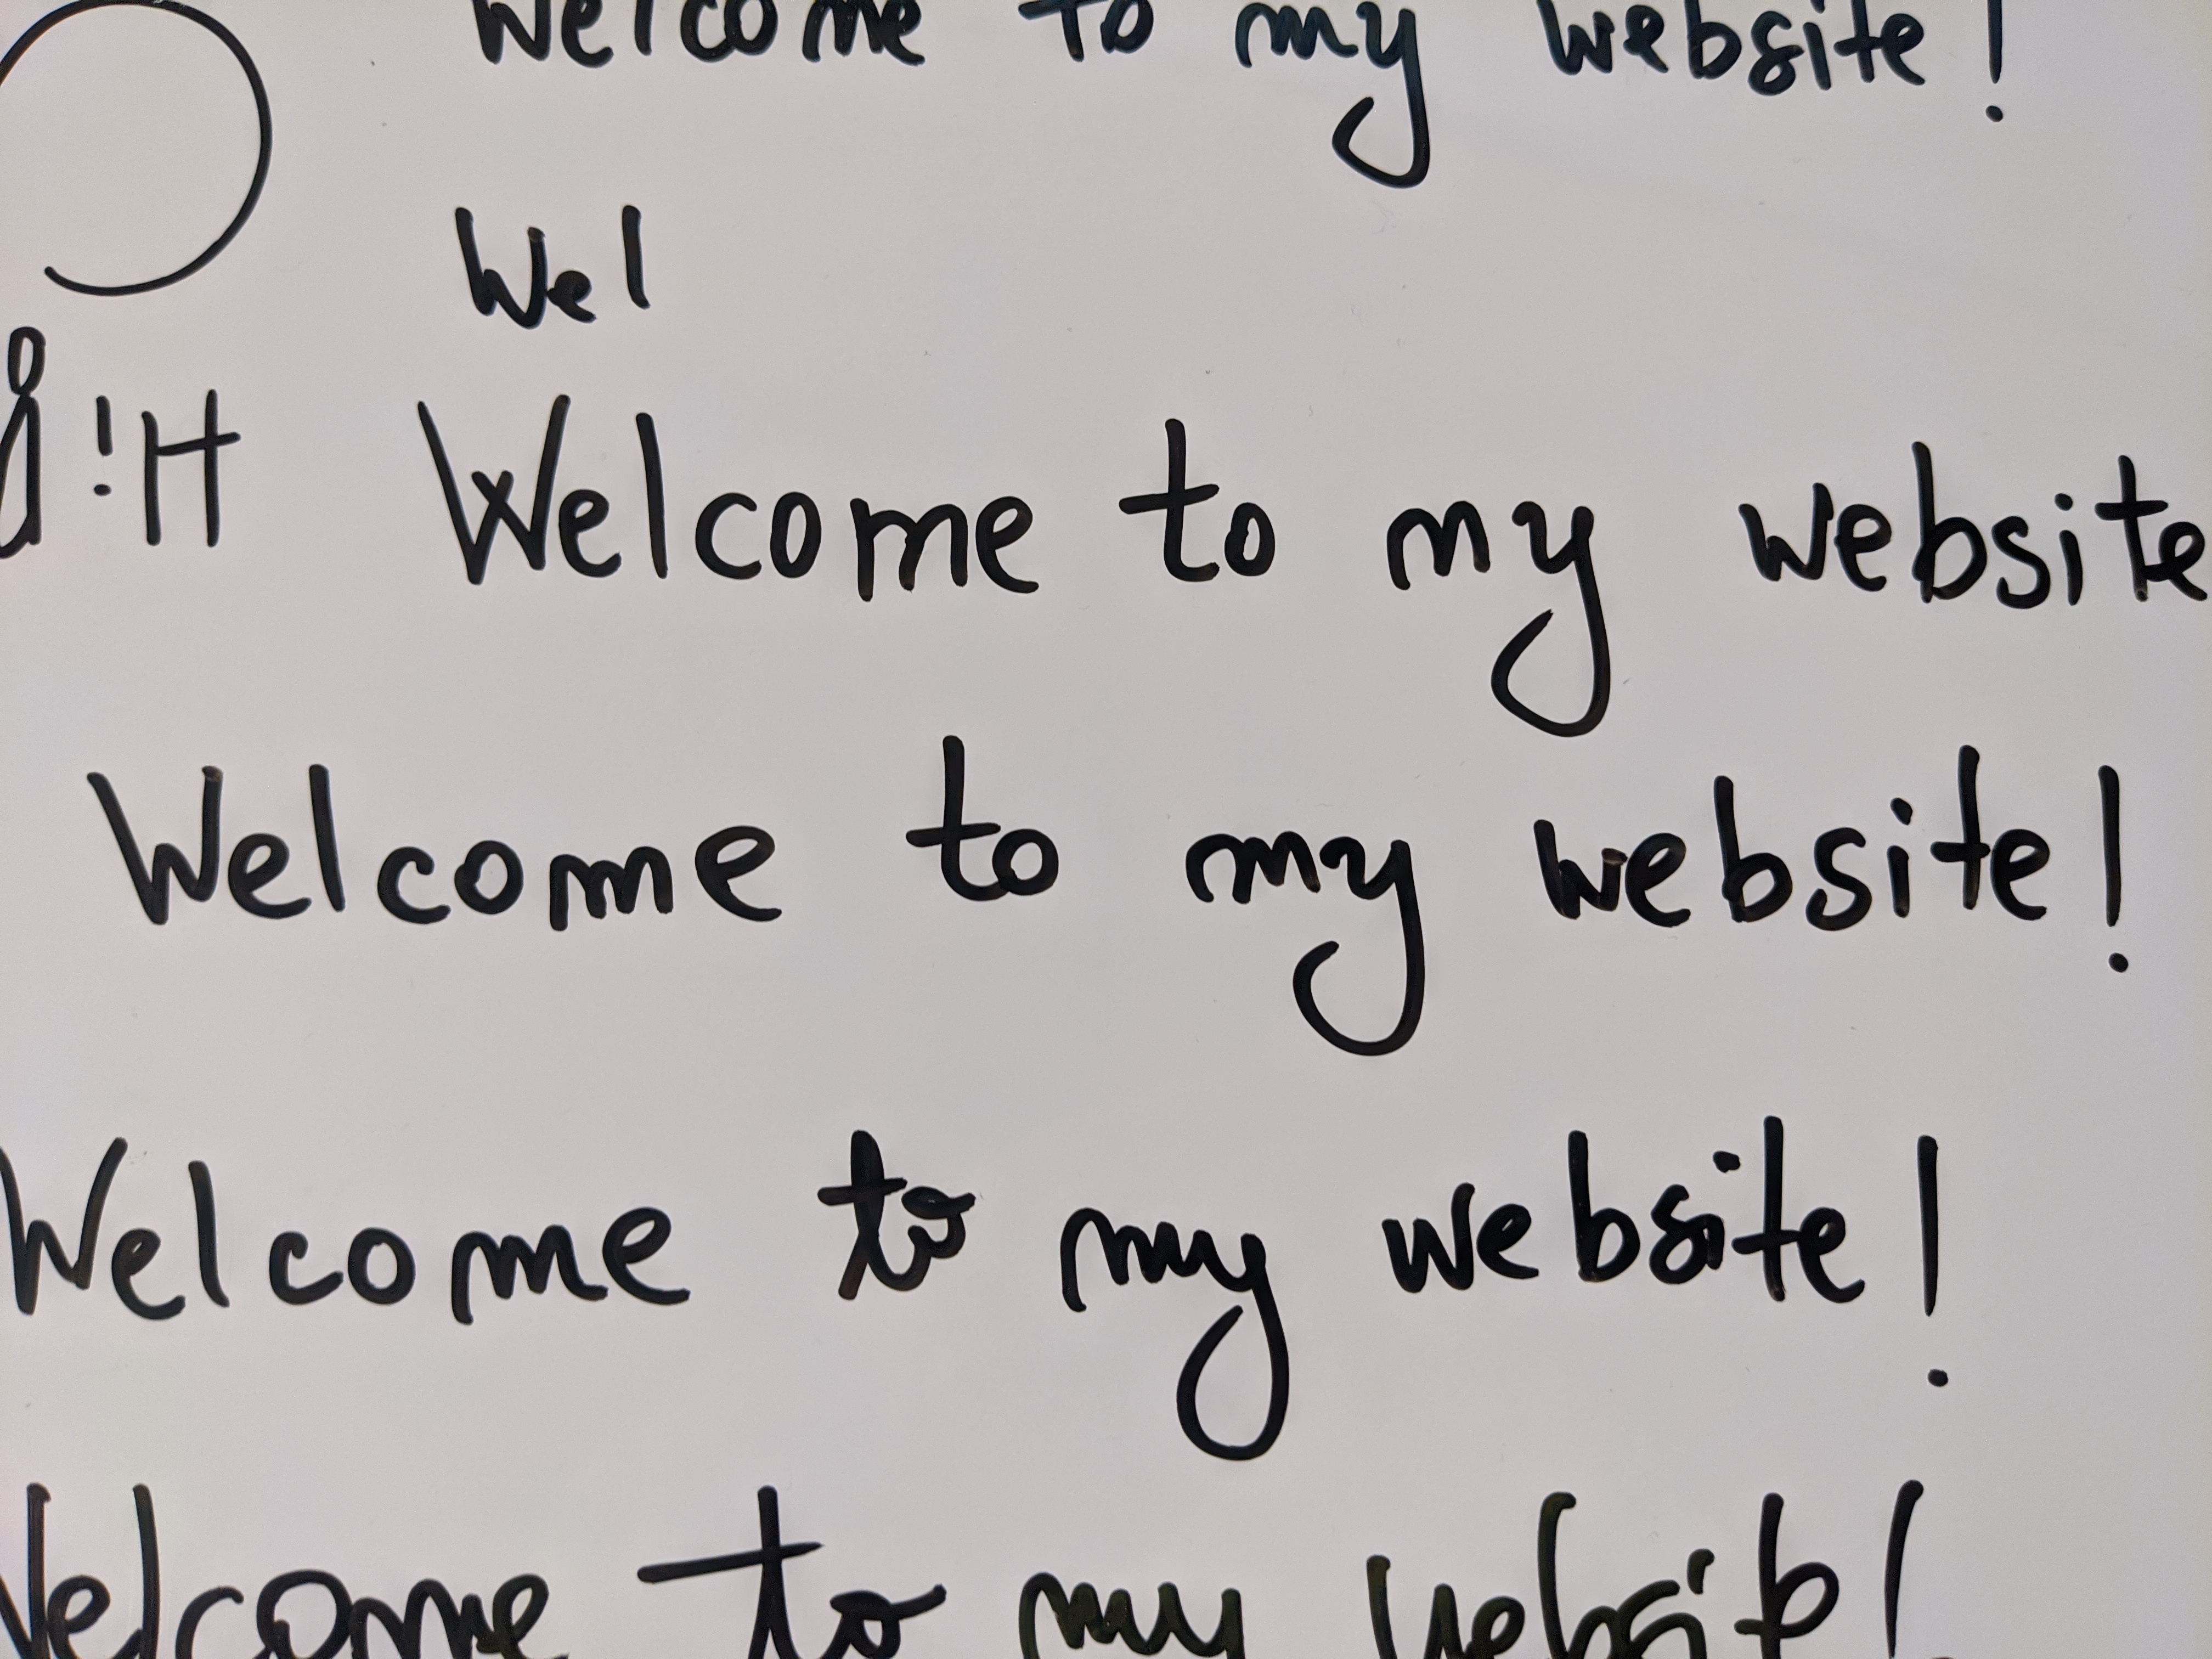 Welcome to my website!
Wel
!H Welcome to my website
Welcome to my website!
Welcome to my website!
Welcome to my